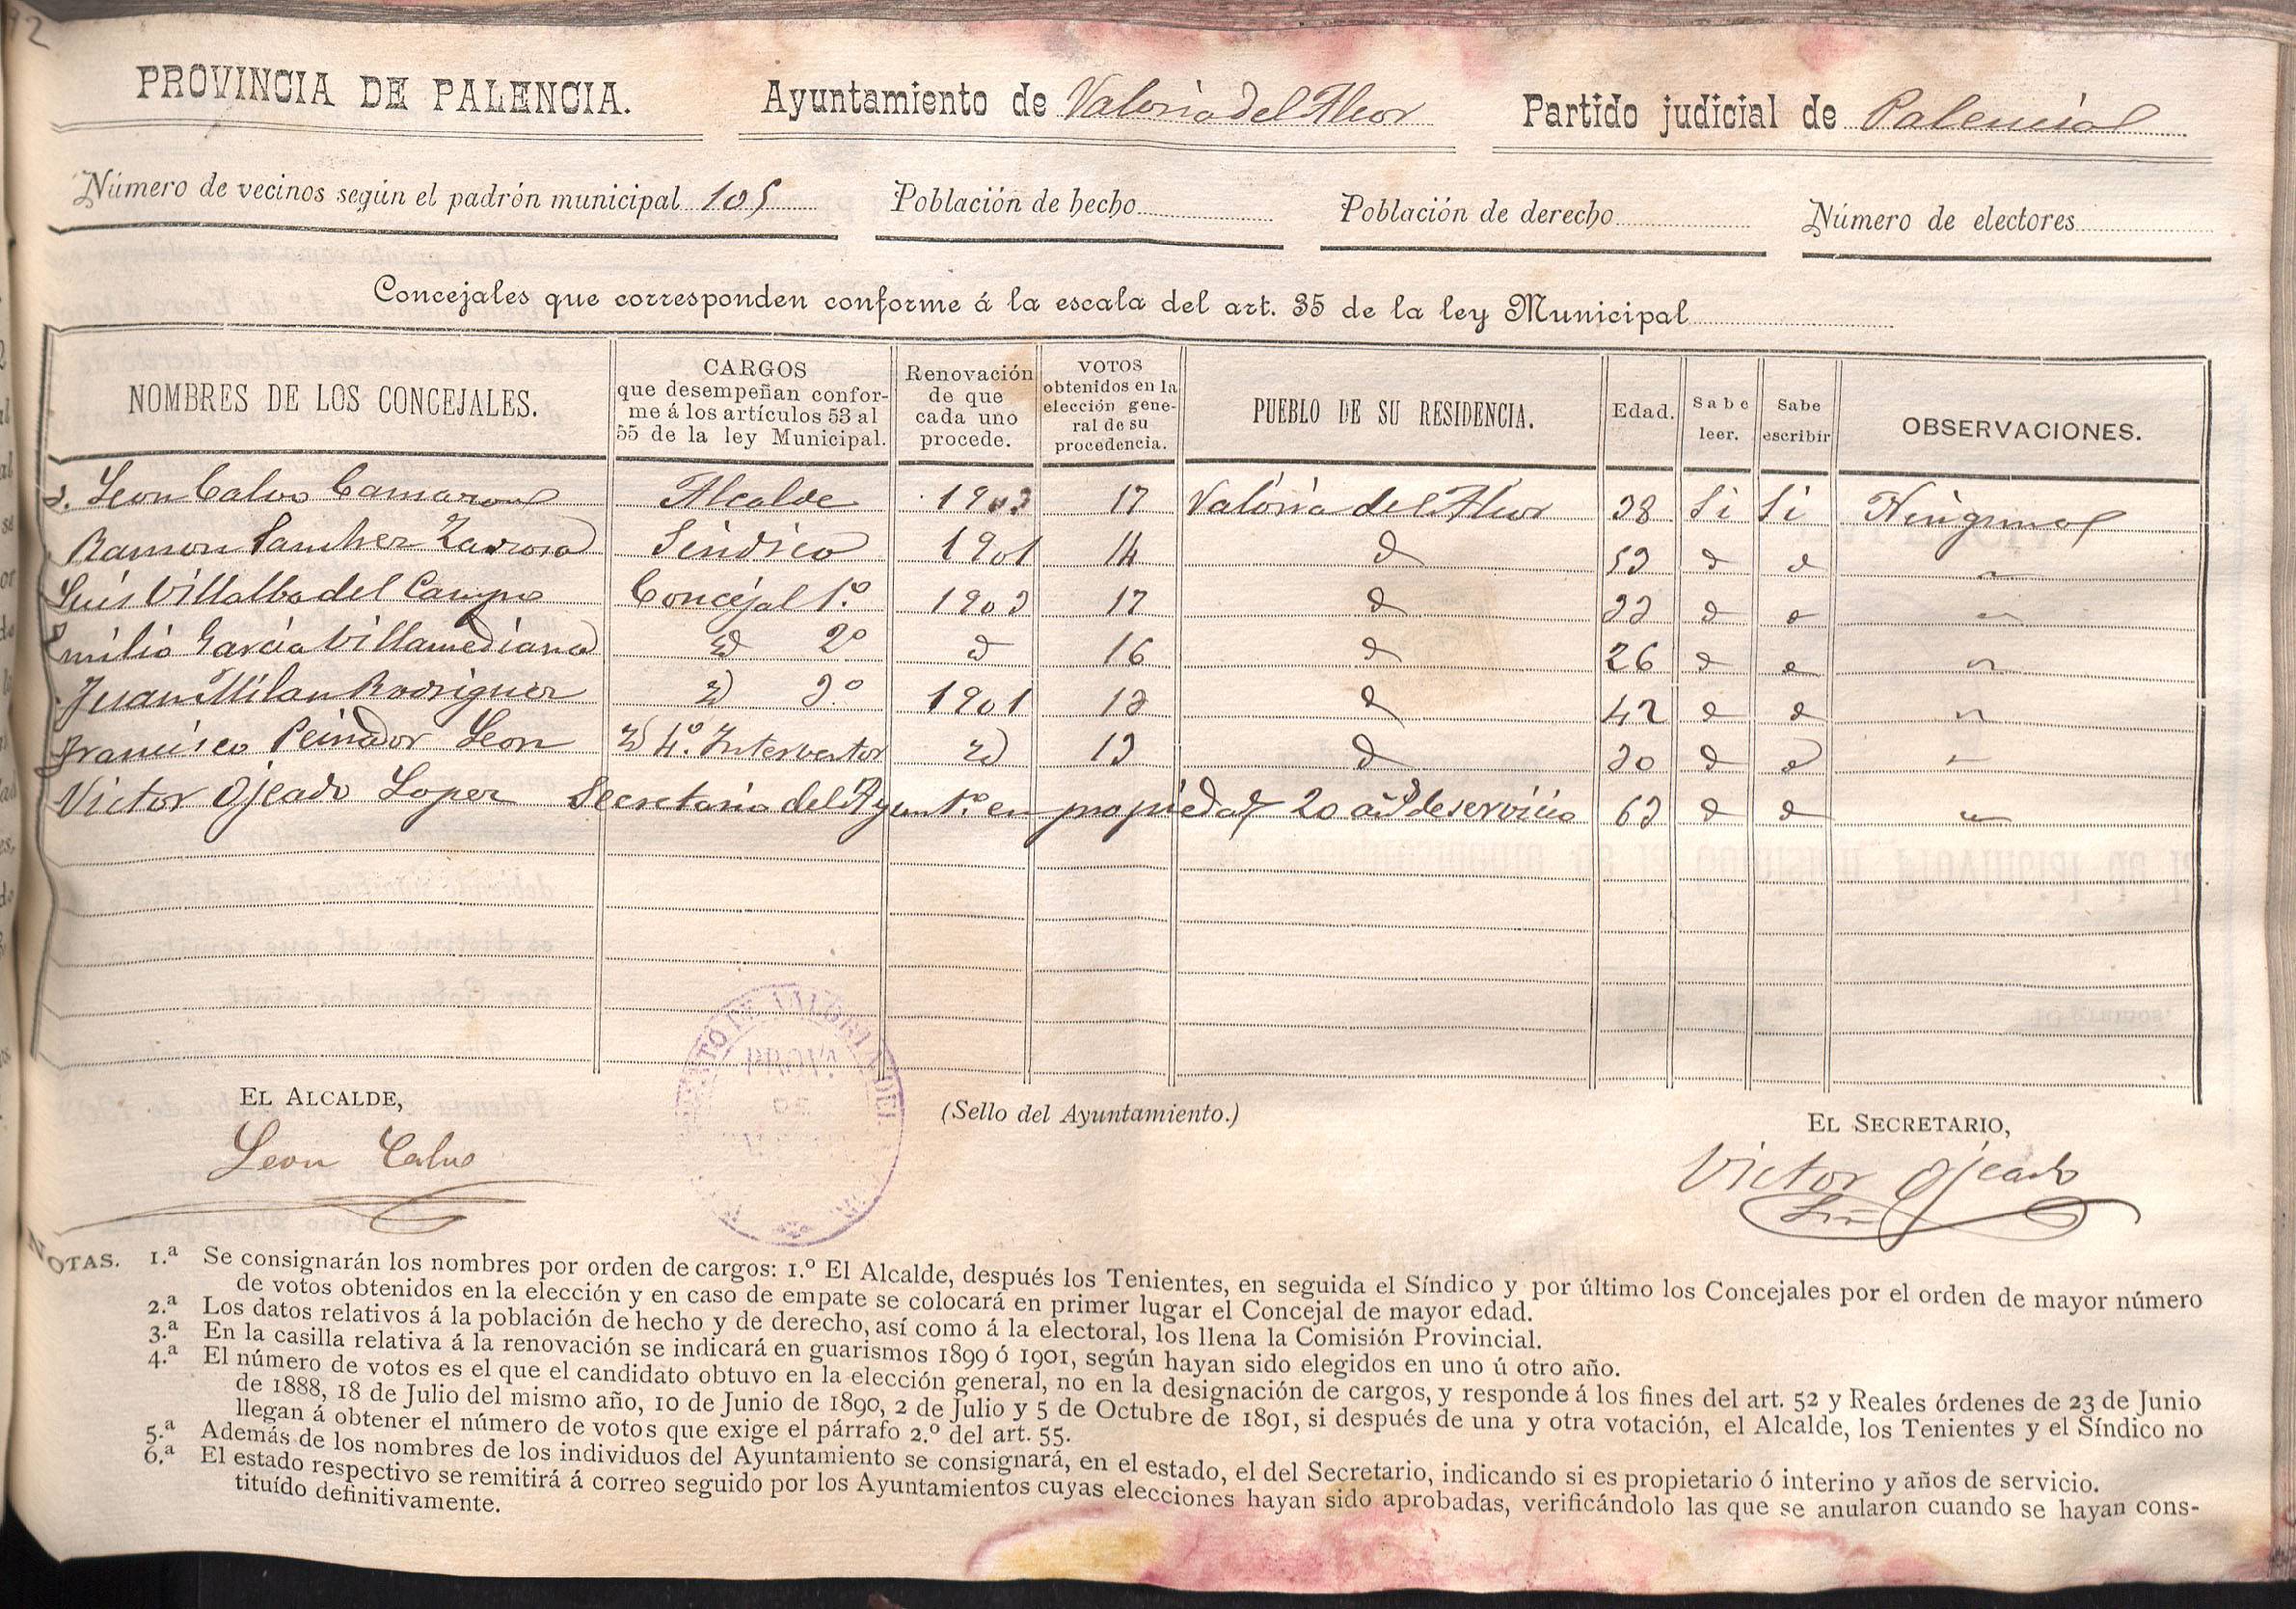 2
PROVINCIA DE PALENCIA. Ayuntamiento de Valoria del Alcor Partido judicial de Palencia
Número de vecinos según el padrón municipal 105 Población de hecho Población de derecho Número de electores
Concejales que corresponden conforme á la escala del art. 35 de la ley Municipal
NOMBRES DE LOS CONCEJALES.
CARGOS
que desempeñan confor-
me á los artículos 53 al
55 de la ley Municipal.
Renovación
de que
cada uno
procede.
VOTOS
obtenidos en la
elección gene-
ral de su
procedencia.
PUEBLO DE SU RESIDENCIA.
Edad.
Sabe
leer.
Sabe
escribir
OBSERVACIONES.
D. Leon Calvo Camazon Alcalde 1903 17 Valoria del Alcor 38 Si Si Ninguna
Ramon Sanchez Zarrosa Sindico 1901 14 d 53 d d "
Luis Villalba del Campo Concejal 1.º 1903 17 d 33 d d "
Emilio Garcia Villamediana id 2º id 16 d 26 d d "
Juan Milan Rodriguez id 3.º 1901 13 d 42 d d "
Francisco Peinador Leon id 4.º Interventor id 13 d 30 d d "
Victor Ojeado Lopez Secretario del Ayunt.º en propiedad 20 añs de servicio 63 d d "
EL ALCALDE,
Leon Calvo
(Sello del Ayuntamiento.)
PROVª
DE
EL SECRETARIO,
Victor Ojeado
NOTAS. 1.ª Se consignarán los nombres por orden de cargos: 1.º El Alcalde, después los Tenientes, en seguida el Síndico y por último los Concejales por el orden de mayor número
de votos obtenidos en la elección y en caso de empate se colocará en primer lugar el Concejal de mayor edad.
2.ª Los datos relativos á la población de hecho y de derecho, así como á la electoral, los llena la Comisión Provincial.
3.ª En la casilla relativa á la renovación se indicará en guarismos 1899 ó 1901, según hayan sido elegidos en uno ú otro año.
4.ª El número de votos es el que el candidato obtuvo en la elección general, no en la designación de cargos, y responde á los fines del art. 52 y Reales órdenes de 23 de Junio
de 1888, 18 de Julio del mismo año, 10 de Junio de 1890, 2 de Julio y 5 de Octubre de 1891, si después de una y otra votación, el Alcalde, los Tenientes y el Síndico no
llegan á obtener el número de votos que exige el párrafo 2.º del art. 55.
5.ª Además de los nombres de los individuos del Ayuntamiento se consignará, en el estado, el del Secretario, indicando si es propietario ó interino y años de servicio.
6.ª El estado respectivo se remitirá á correo seguido por los Ayuntamientos cuyas elecciones hayan sido aprobadas, verificándolo las que se anularon cuando se hayan cons-
tituído definitivamente.